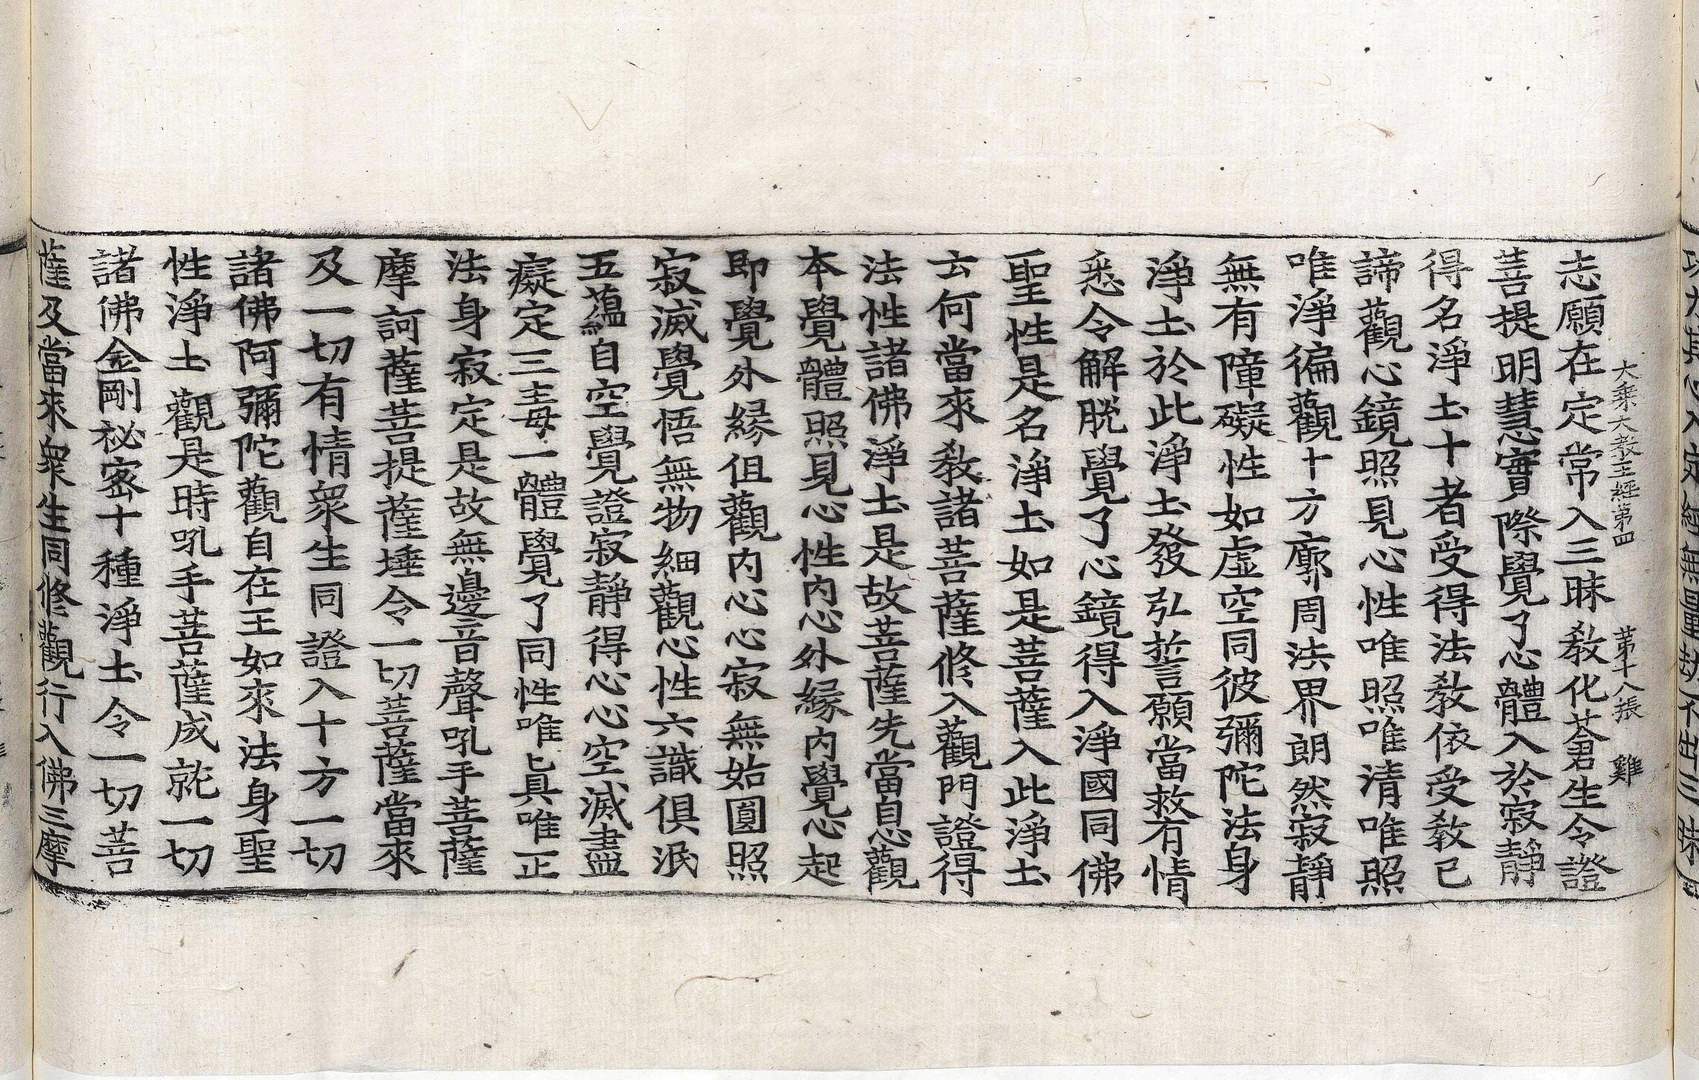 大乘大教王經第四　第十八張　雞
志願在定常入三昧敎化蒼生令證
菩提明慧實際覺了心體入於寂靜
得名淨土十者受得法敎依受敎已
諦觀心鏡照見心性唯照唯清唯照
唯淨徧觀十方廓周法界朗然寂靜
無有障礙性如虛空同彼彌陀法身
淨土於此淨土發弘誓願當救有情
悉令解脫覺了心鏡得入淨國同佛
聖性是名淨土如是菩薩入此淨土
云何當來敎諸菩薩修入觀門證得
法性諸佛淨土是故菩薩先當自觀
本覺體照見心性內心外緣內覺心起
即覺外緣但觀內心心寂無始圓照
寂滅覺悟無物細觀心性六識俱泯
五蘊自空覺證寂靜得心心空滅盡
癡定三毒一體覺了同性唯真唯正
法身寂定是故無邊音聲吼手菩薩
摩訶薩菩提薩埵令一切菩薩當來
及一切有情衆生同證入十方一切
諸佛阿彌陀觀自在王如來法身聖
性淨土觀是時吼手菩薩成就一切
諸佛金剛祕密十種淨土令一切菩
薩及當來衆生同修觀行入佛三摩